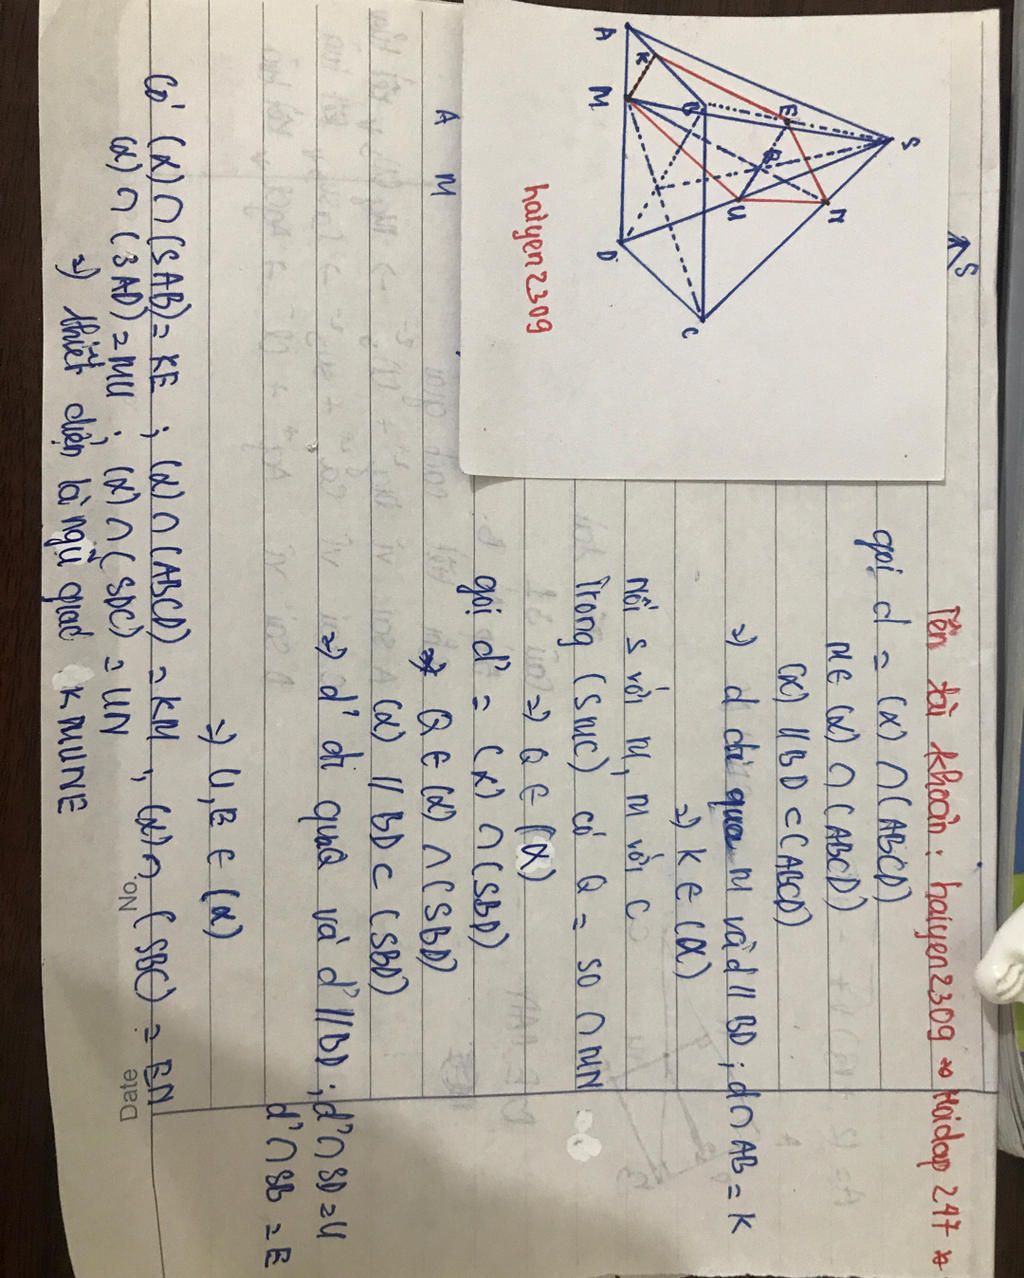 Tên tài khoản: haiyen2309 ∞ Hoidap 247 *
gọi d = (α) ∩ (ABCD)
M ∈ (α) ∩ (ABCD)
(α) // BD ⊂ (ABCD)
=) d đi qua M và d // BD ; d ∩ AB = K
=) K ∈ (α)
Nối S với M, M với C
Trong (SMC) có Q = SO ∩ MN
=) Q ∈ (α)
gọi d' = (α) ∩ (SBD)
Q ∈ (α) ∩ (SBD)
(α) // BD ⊂ (SBD)
=) d' đi qua Q và d' // BD ; d' ∩ SD = U
d' ∩ SB = E
=) U, E ∈ (α)
Có (α) ∩ (SAB) = KE ; (α) ∩ (ABCD) = KM , (α) ∩ (SBC) = EN
(α) ∩ (SAD) = MU ; (α) ∩ (SDC) = UN
=) thiết diện là ngũ giác KMUNE
S
A
K
M
B
E
S
Q
U
N
D
C
haiyen2309
A M
S
No.
Date